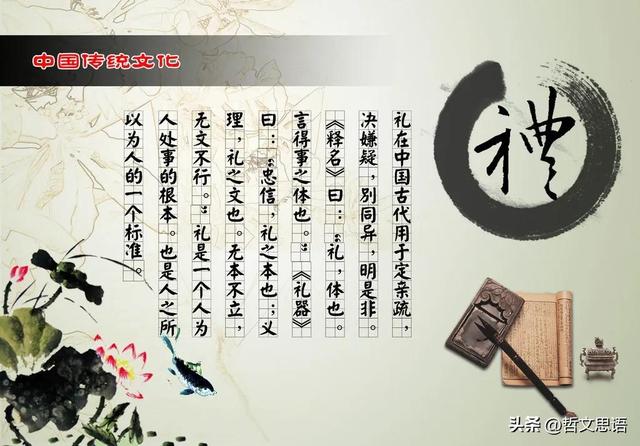 中国传统文化
禮
礼在中国古代用于定亲疏，
决嫌疑，别同异，明是非。
《释名》曰：“礼，体也。
言得事之体也。”《礼器》
曰：“忠信，礼之本也；义
理，礼之文也。无本不立，
无文不行。”礼是一个人为
人处事的根本。也是人之所
以为人的一个标准。
头条 @哲文思语